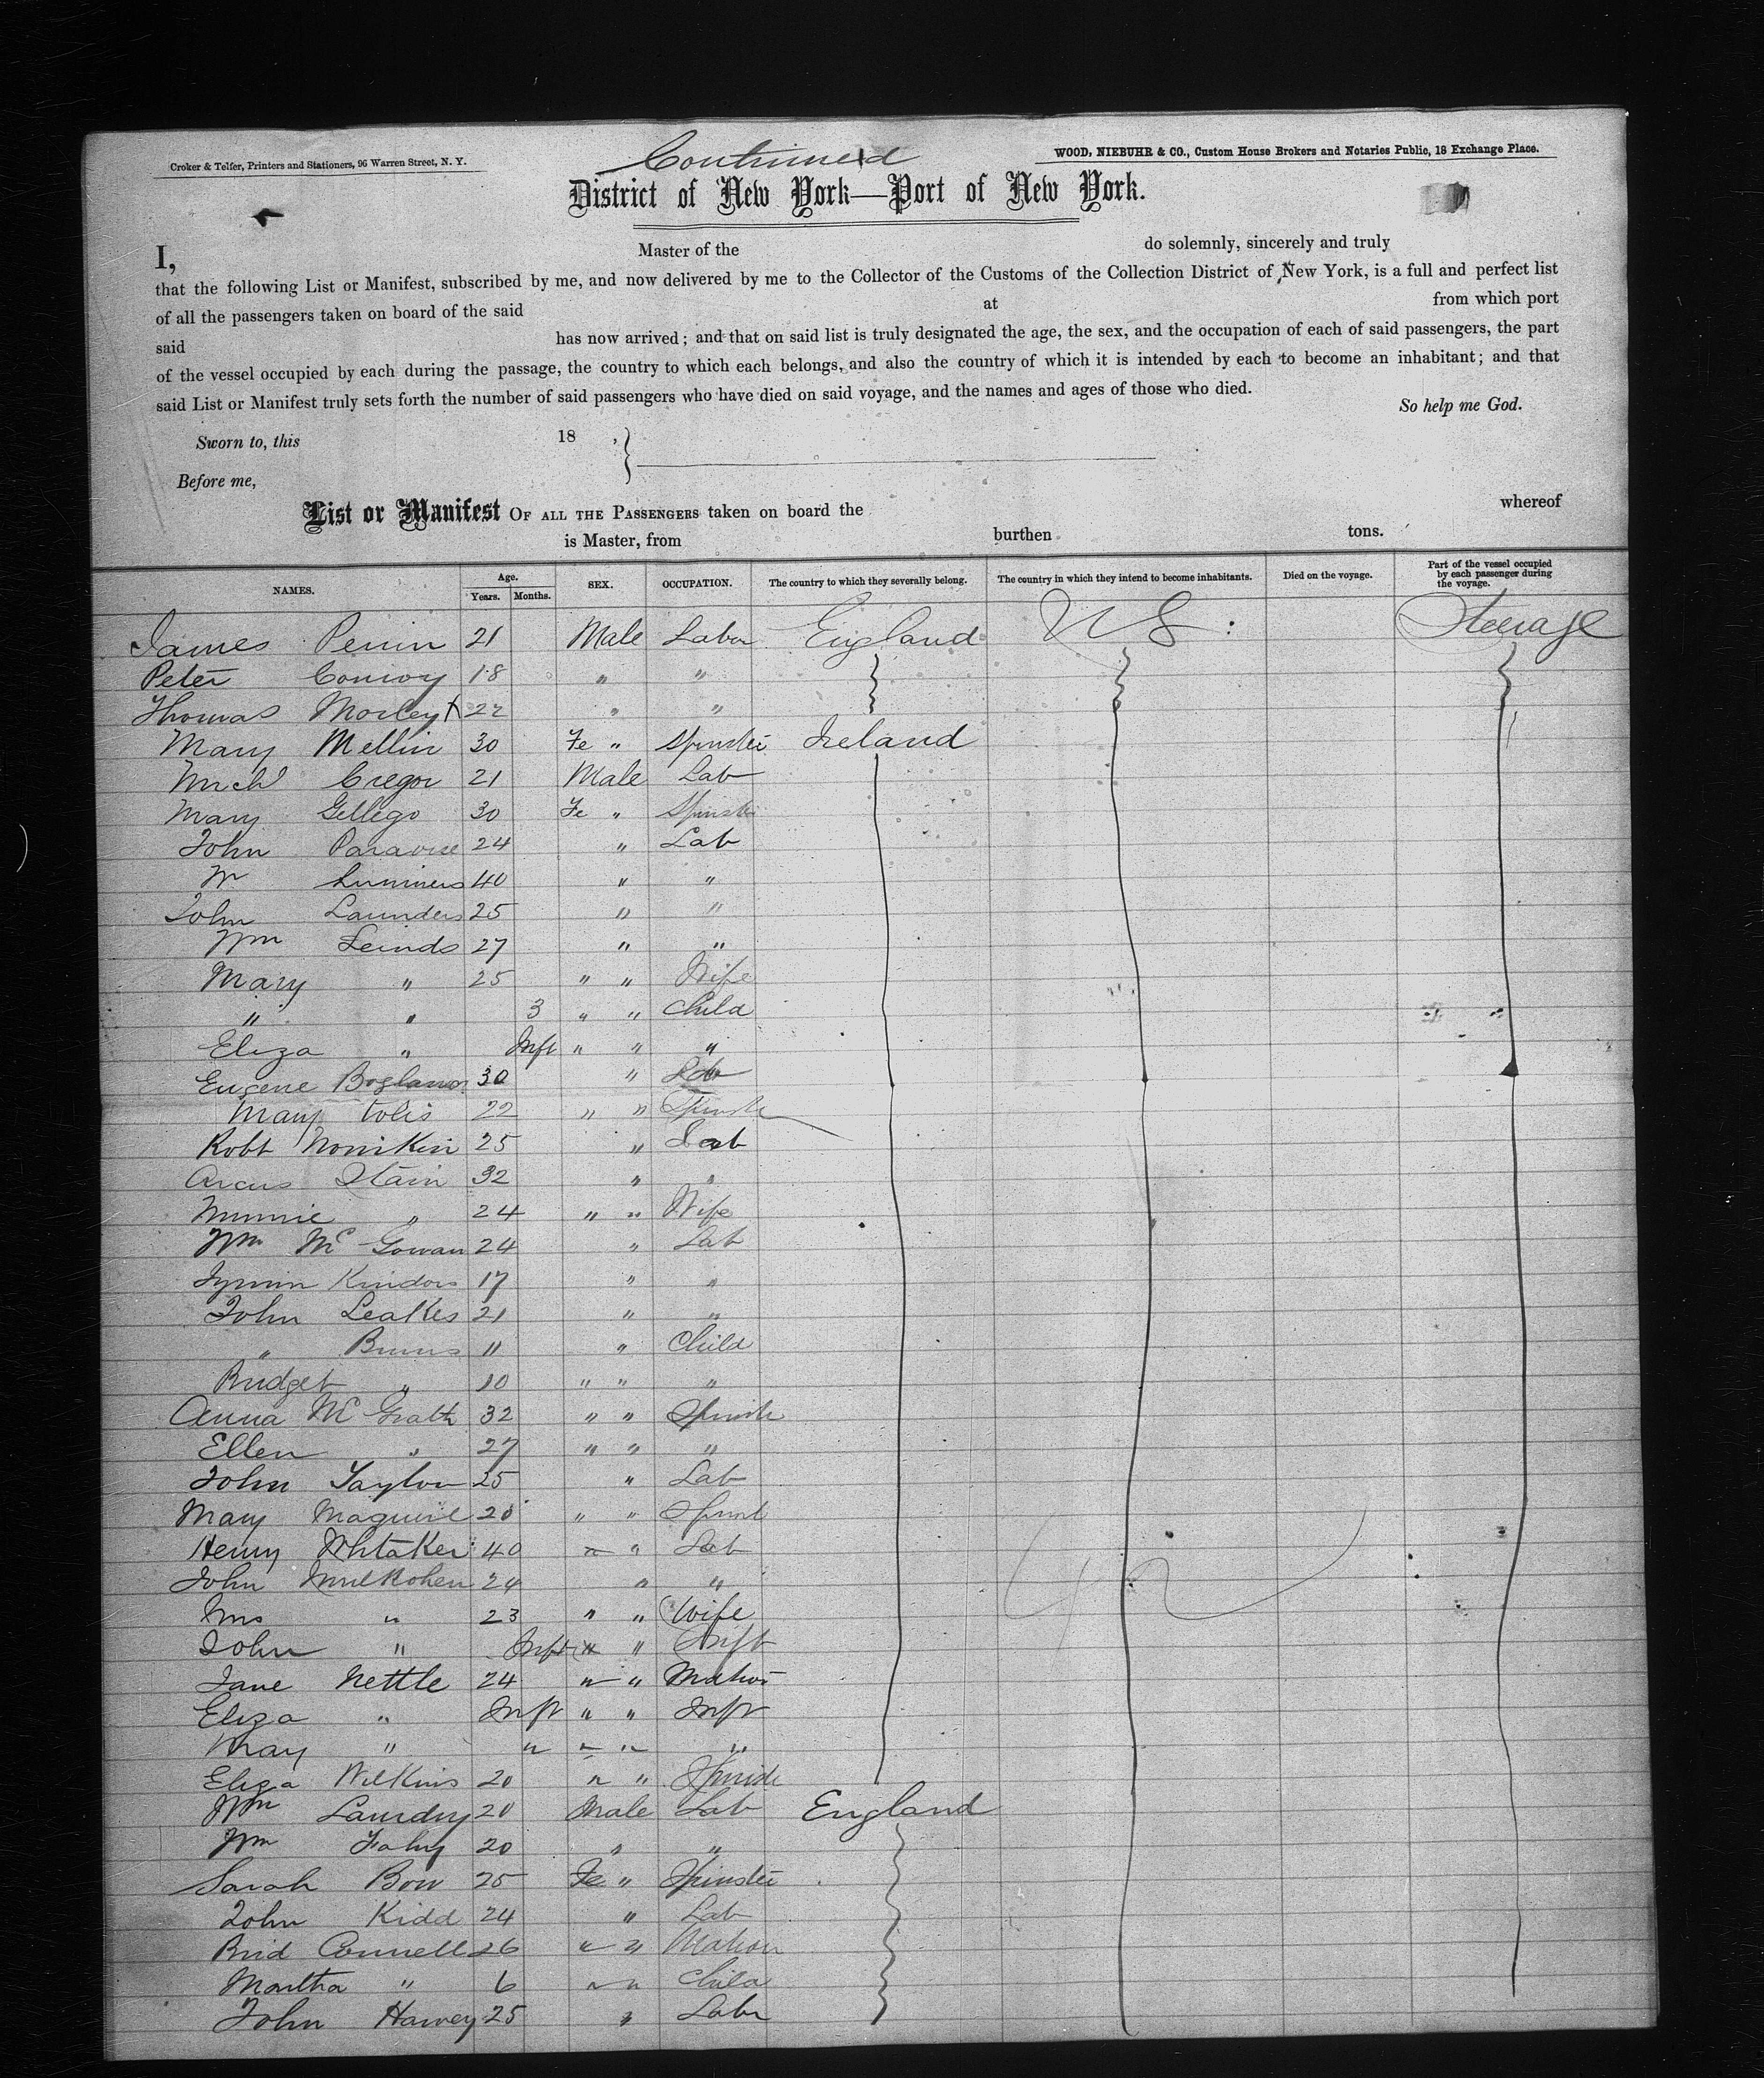 Continued
Croker & Telfer, Printers and Stationers, 96 Warren Street, N. Y.
WOOD, NIEBUHR & CO., Custom House Brokers and Notaries Public, 18 Exchange Place.
District of New York—Port of New York.
I, Master of the do solemnly, sincerely and truly
that the following List or Manifest, subscribed by me, and now delivered by me to the Collector of the Customs of the Collection District of New York, is a full and perfect list
of all the passengers taken on board of the said at from which port
said has now arrived; and that on said list is truly designated the age, the sex, and the occupation of each of said passengers, the part
of the vessel occupied by each during the passage, the country to which each belongs, and also the country of which it is intended by each to become an inhabitant; and that
said List or Manifest truly sets forth the number of said passengers who have died on said voyage, and the names and ages of those who died.
So help me God.
Sworn to, this 18 ,
Before me,
List or Manifest OF ALL THE PASSENGERS taken on board the whereof
is Master, from burthen tons.
NAMES. Age. Years. Months. SEX. OCCUPATION. The country to which they severally belong. The country in which they intend to become inhabitants. Died on the voyage. Part of the vessel occupied by each passenger during the voyage.
James Perrin 21 Male Labor England US: Steerage
Peter Conroy 18 " "
Thomas Morley 22 " "
Mary Mellin 30 Fe " Spinster Ireland
Mich Cregor 21 Male Lab
Mary Gellego 30 Fe " Spinster
John 24 " Lab
40 " "
John Launders 25 " "
Wm Leinds 27 " "
Mary " 25 " " Wife
" " 3 " " Child
Eliza " Inft " " "
Eugene 30 " Lab
Mary Tolis 22 " " Spinster
Robt Nomikin 25 " Lab
Stain 32 " "
Minnie " 24 " " Wife
Wm McGowan 24 " Lab
17 " "
John Leakes 21 " "
" Burns 11 " Child
Bridget " 10 " " "
Anna McGrath 32 " " Spinste
Ellen " 27 " " "
John Taylor 25 " Lab
Mary Maguire 20 " " Spinst
Henry Whitaker 40 " " Lab
John 24 " "
Mrs " 23 " " Wife
John " Inft " " Inft
Jane Nettle 24 " " Matron
Eliza " Inft " " Inft
May " " " " "
Eliza Wilkins 20 " " Spinste
Wm Laundry 20 Male Lab England
Wm Fahy 20 " "
Sarah Bow 25 Fe " Spinster
John Kidd 24 " Lab
Brid Connell 26 " " Matron
Martha " 6 " " Child
John Harvey 25 " Labr